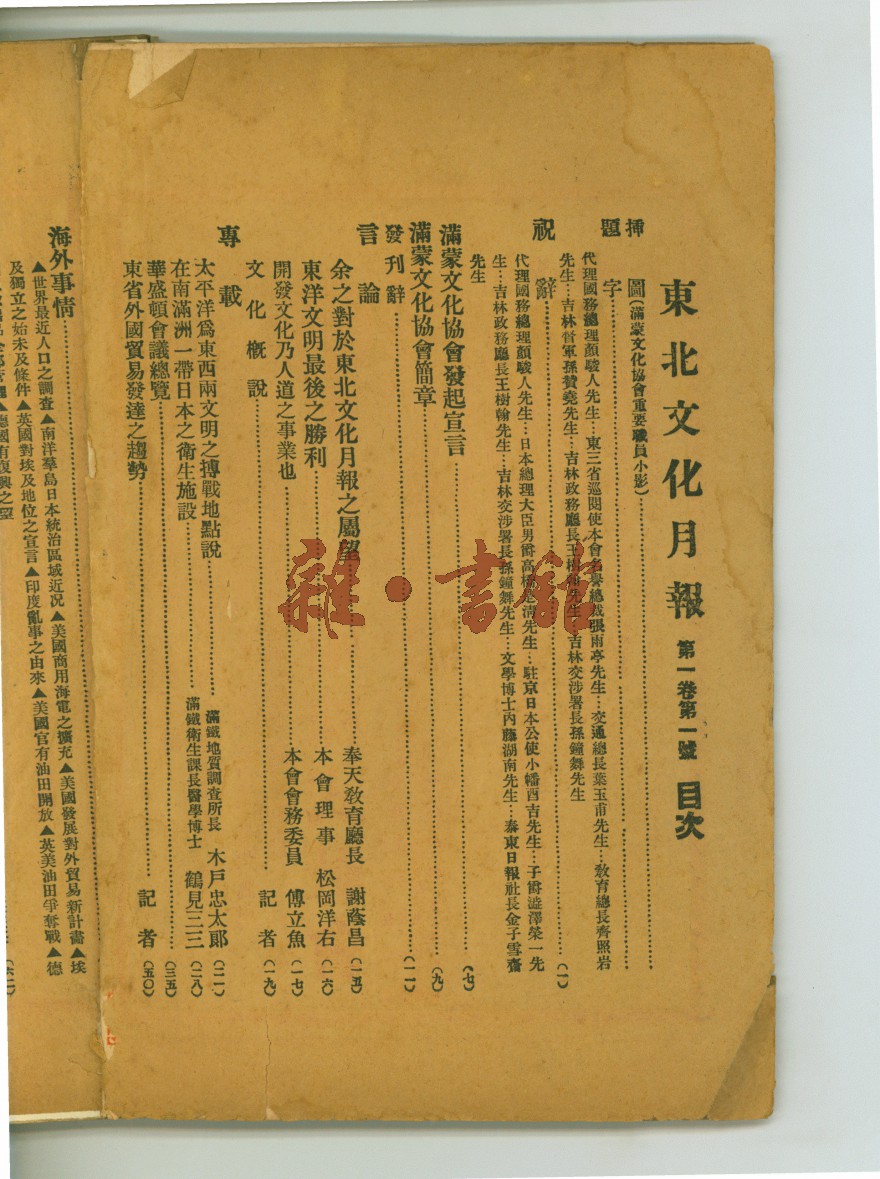 東北文化月報 第一卷第一號 目次
插圖(滿蒙文化協會重要職員小影)
題字
代理國務總理顏駿人先生…東三省巡閱使本會名譽總裁張雨亭先生…交通總長葉玉甫先生…教育總長齊照岩
先生…吉林督軍孫贊堯先生…吉林政務廳長王樹翰先生…吉林交涉署長孫鐘舞先生
祝辭(一)
代理國務總理顏駿人先生…日本總理大臣男爵高橋是清先生…駐京日本公使小幡酉吉先生…子爵澁澤榮一先
生…吉林政務廳長王樹翰先生…吉林交涉署長孫鐘舞先生…文學博士內藤湖南先生…泰東日報社長金子雪齋
先生
滿蒙文化協會發起宣言(七)
滿蒙文化協會簡章(九)
發刊辭(一一)
言論
余之對於東北文化月報之屬望 奉天教育廳長 謝蔭昌(一五)
東洋文明最後之勝利 本會理事 松岡洋右(一六)
開發文化乃人道之事業也 本會會務委員 傅立魚(一七)
文化概說 記者(一九)
專載
太平洋爲東西兩文明之搏戰地點說 滿鐵地質調查所長 木戶忠太郎(二一)
在南滿洲一帶日本之衛生施設 滿鐵衛生課長醫學博士 鶴見三三(二八)
華盛頓會議總覽(三五)
東省外國貿易發達之趨勢 記者(五〇)
海外事情
▲世界最近人口之調查▲南洋羣島日本統治區域近况▲美國商用海電之擴充▲美國發展對外貿易新計畫▲埃
及獨立之始末及條件▲英國對埃及地位之宣言▲印度亂事之由來▲美國官有油田開放▲英美油田爭奪戰▲德
▲德國有復興之望
雜·書館